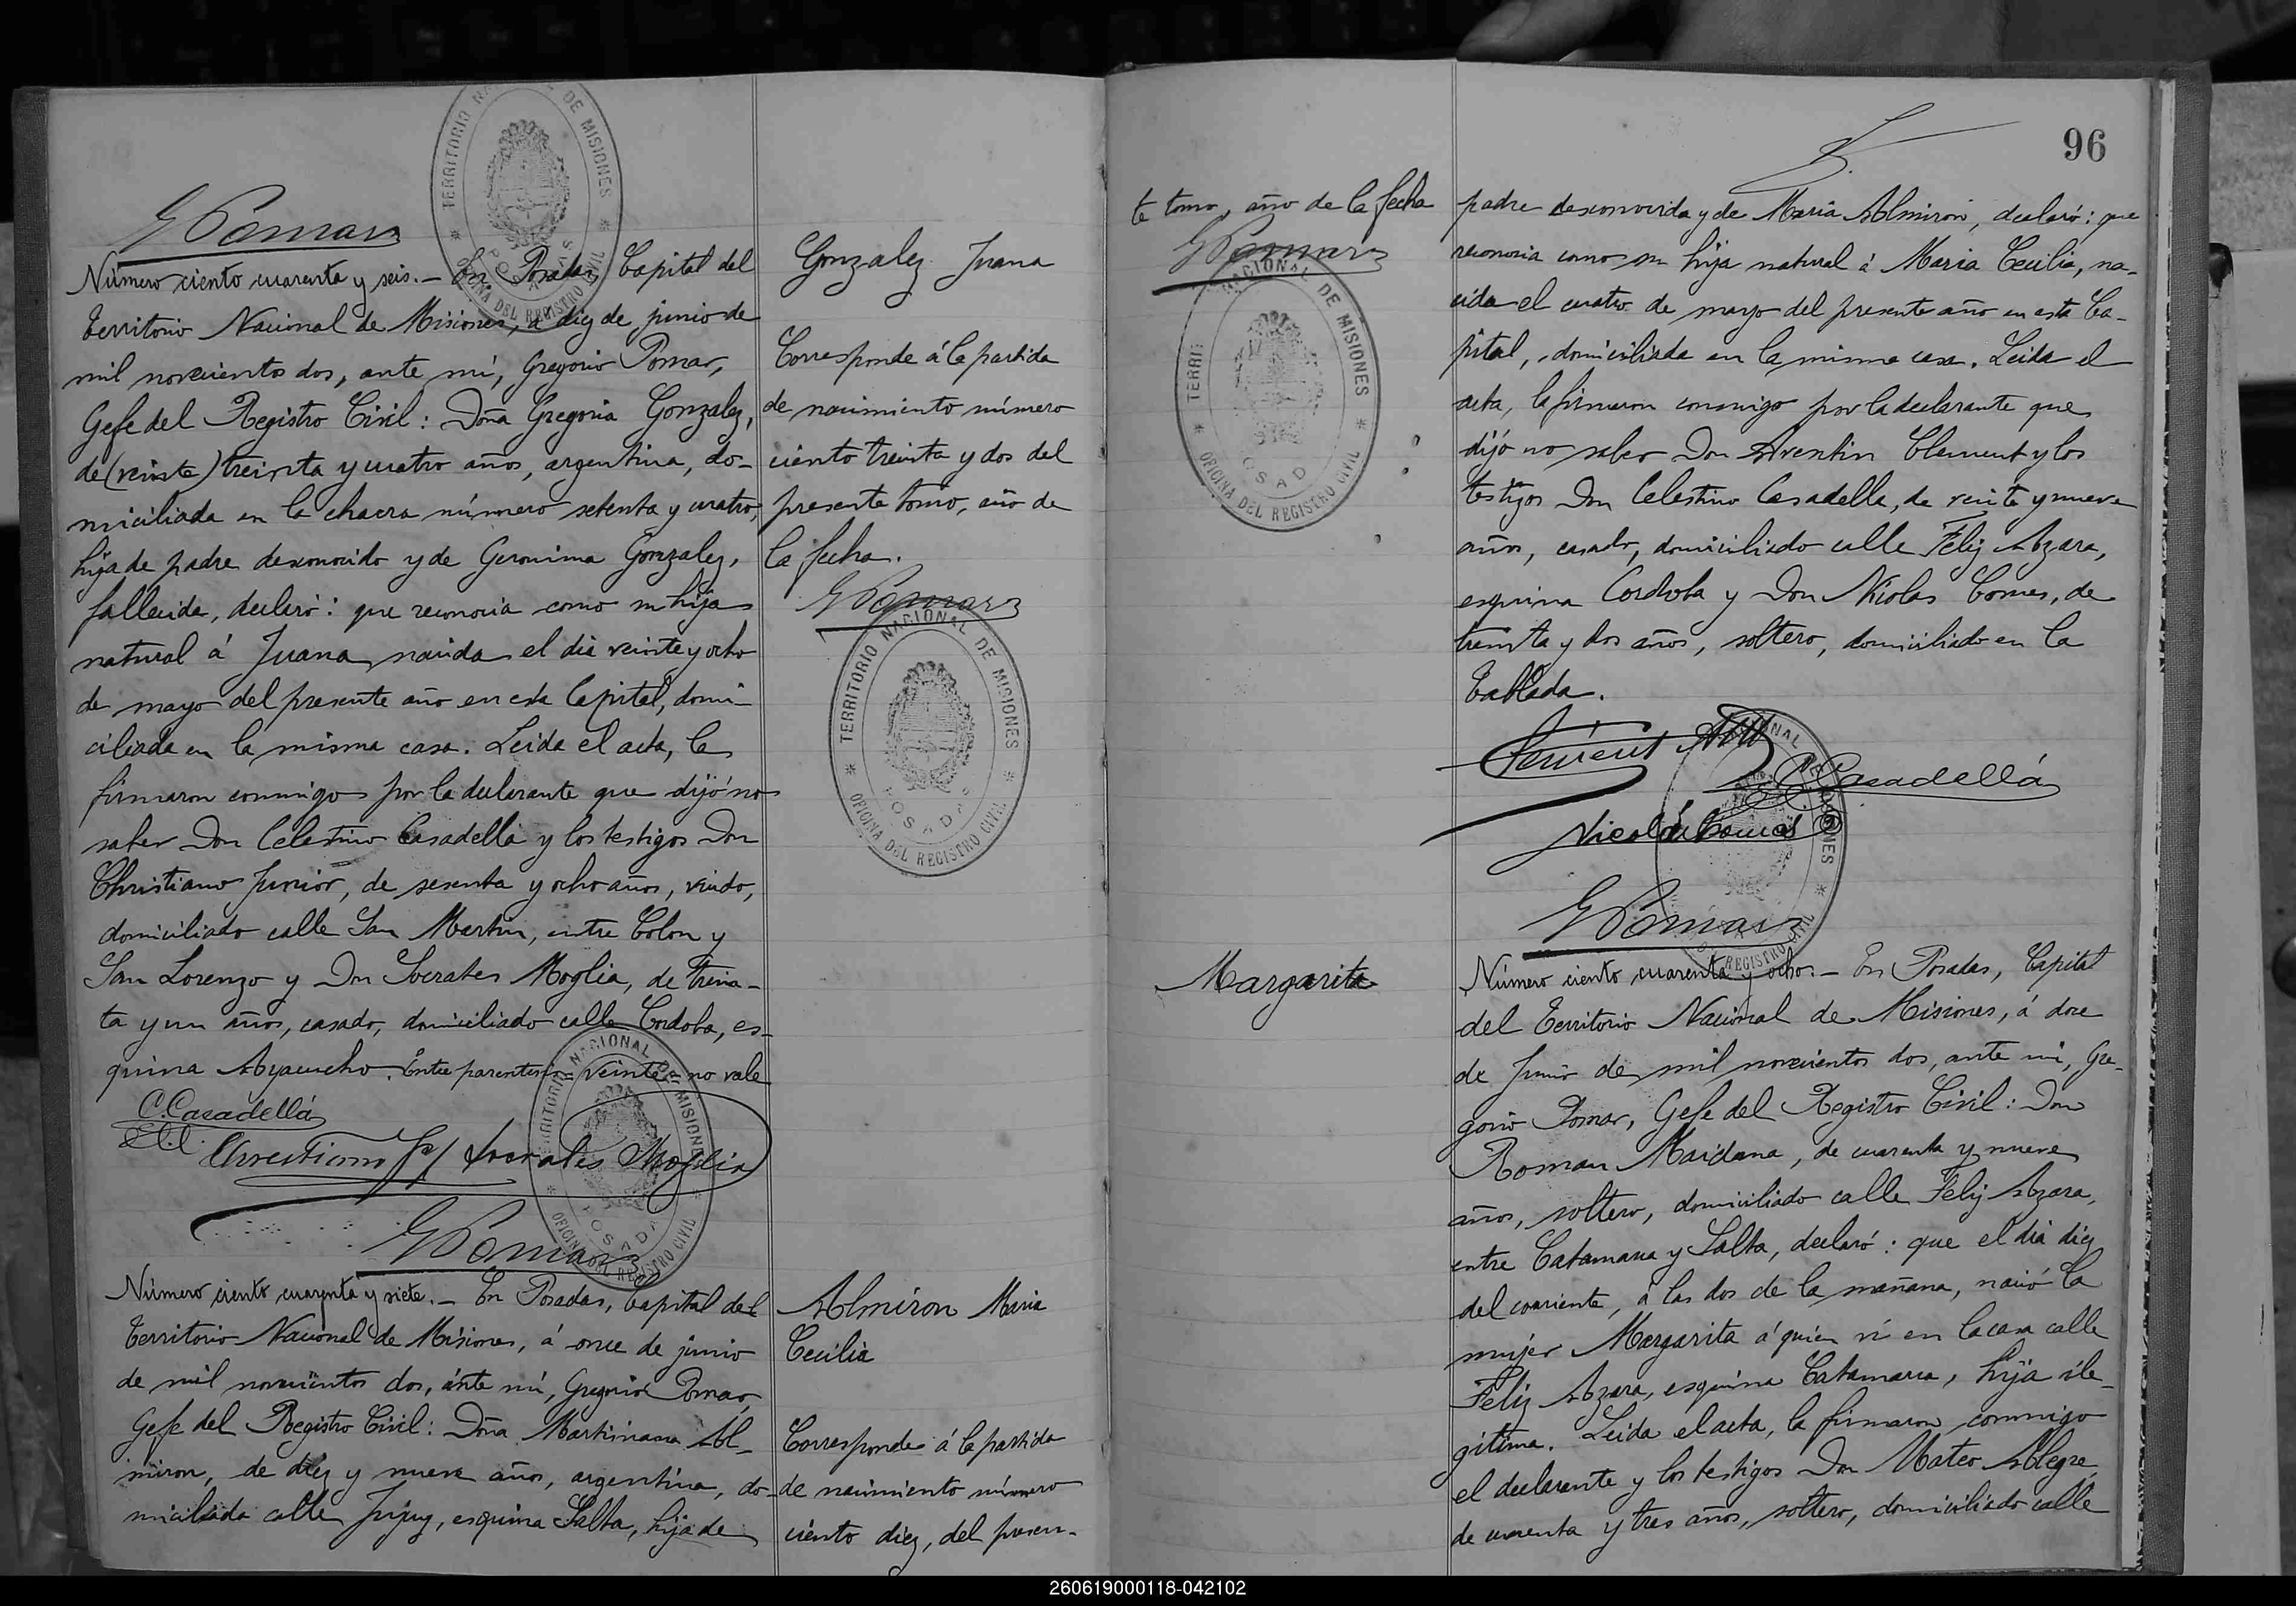 G Pomar
Número ciento cuarenta y seis. — En Posadas, Capital del
Territorio Nacional de Misiones, á diez de junio de
mil novecientos dos, ante mí, Gregorio Pomar,
Gefe del Registro Civil: Doña Gregoria Gonzalez,
de (veinte) treinta y cuatro años, argentina, do-
miciliada en la chacra número setenta y cuatro,
hija de padre desconocido y de Geronima Gonzalez,
fallecida, declaró: que reconocia como su hija
natural á Juana, nacida el dia veinte y ocho
de mayo del presente año en esta Capital, domi-
ciliada en la misma casa. Leida el acta, la
firmaron conmigo por la declarante que dijó no
saber Don Celestino Casadellá y los testigos Don
Christiano Junior, de sesenta y ocho años, viudo,
domiciliado calle San Martin, entre Colon y
San Lorenzo y Don Socrates Moglia, de trein-
ta y un años, casado, domiciliado calle Cordoba, es-
quina Ayacucho. Entre parentesis "veinte" no vale
C. Casadellá
Christiano Jr Socrates Moglia
G Pomar
Número ciento cuarenta y siete. — En Posadas, Capital del
Territorio Nacional de Misiones, á once de junio
de mil novecientos dos, ante mí, Gregorio Pomar,
Gefe del Registro Civil: Doña Martiniana Al-
miron, de diez y nueve años, argentina, do-
miciliada calle Jujuy, esquina Salta, hija de
Gonzalez Juana
Corresponde á la partida
de nacimiento número
ciento treinta y dos del
presente tomo, año de
la fecha.
G Pomar
TERRITORIO NACIONAL DE MISIONES
POSADAS
OFICINA DEL REGISTRO CIVIL
Almiron Maria
Cecilia
Corresponde á la partida
de nacimiento número
ciento diez, del presen-
te tomo, año de la fecha
G Pomar
NACIONAL DE MISIONES
OFICINA DEL REGISTRO CIVIL
96
padre desconocido y de Maria Almiron, declaró: que
reconocia como su hija natural á Maria Cecilia, na-
cida el cuatro de mayo del presente año en esta Ca-
pital, domiciliada en la misma casa. Leida el
acta, la firmaron conmigo por la declarante que
dijó no saber Don Aventin Clement y los
testigos Don Celestino Casadella, de veinte y nueve
años, casado, domiciliado calle Feliz Azara,
esquina Cordoba y Don Nicolas Comes, de
treinta y dos años, soltero, domiciliado en la
Tablada.
C. Casadellá
Nicolás Comes
G Pomar
Margarita
Número ciento cuarenta y ocho. — En Posadas, Capital
del Territorio Nacional de Misiones, á doce
de Junio de mil novecientos dos, ante mi, Gre-
gorio Pomar, Gefe del Registro Civil: Don
Roman Maidana, de cuarenta y nueve
años, soltero, domiciliado calle Feliz Azara,
entre Catamarca y Salta, declaró: que el dia diez
del corriente, á las dos de la mañana, nació la
mujer Margarita á quien ví en la casa calle
Feliz Azara, esquina Catamarca, hija ile-
gitima. Leida el acta, la firmaron conmigo
el declarante y los testigos Don Mateo Alegre,
de cuarenta y tres años, soltero, domiciliado calle
260619000118-042102